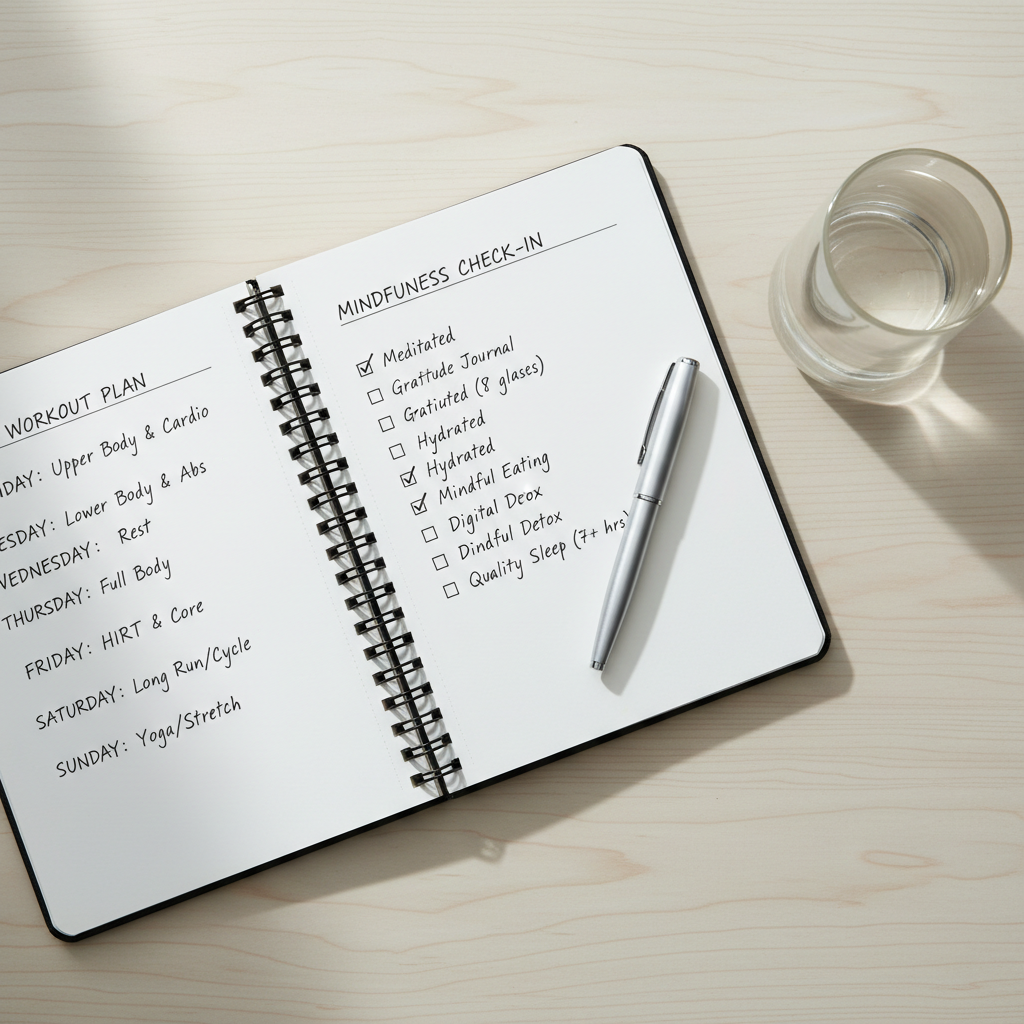 WORKOUT PLAN
DAY: Upper Body & Cardio
ESDAY: Lower Body & Abs
WEDNESDAY: Rest
THURSDAY: Full Body
FRIDAY: HIRT & Core
SATURDAY: Long Run/Cycle
SUNDAY: Yoga/Stretch
MINDFUNESS CHECK-IN
Meditated
Grattude Journal
Gratiuted (8 glases)
Hydrated
Hydrated
Mindful Eating
Digital Deox
Dindful Detox
Quality Sleep (7+ hrs)